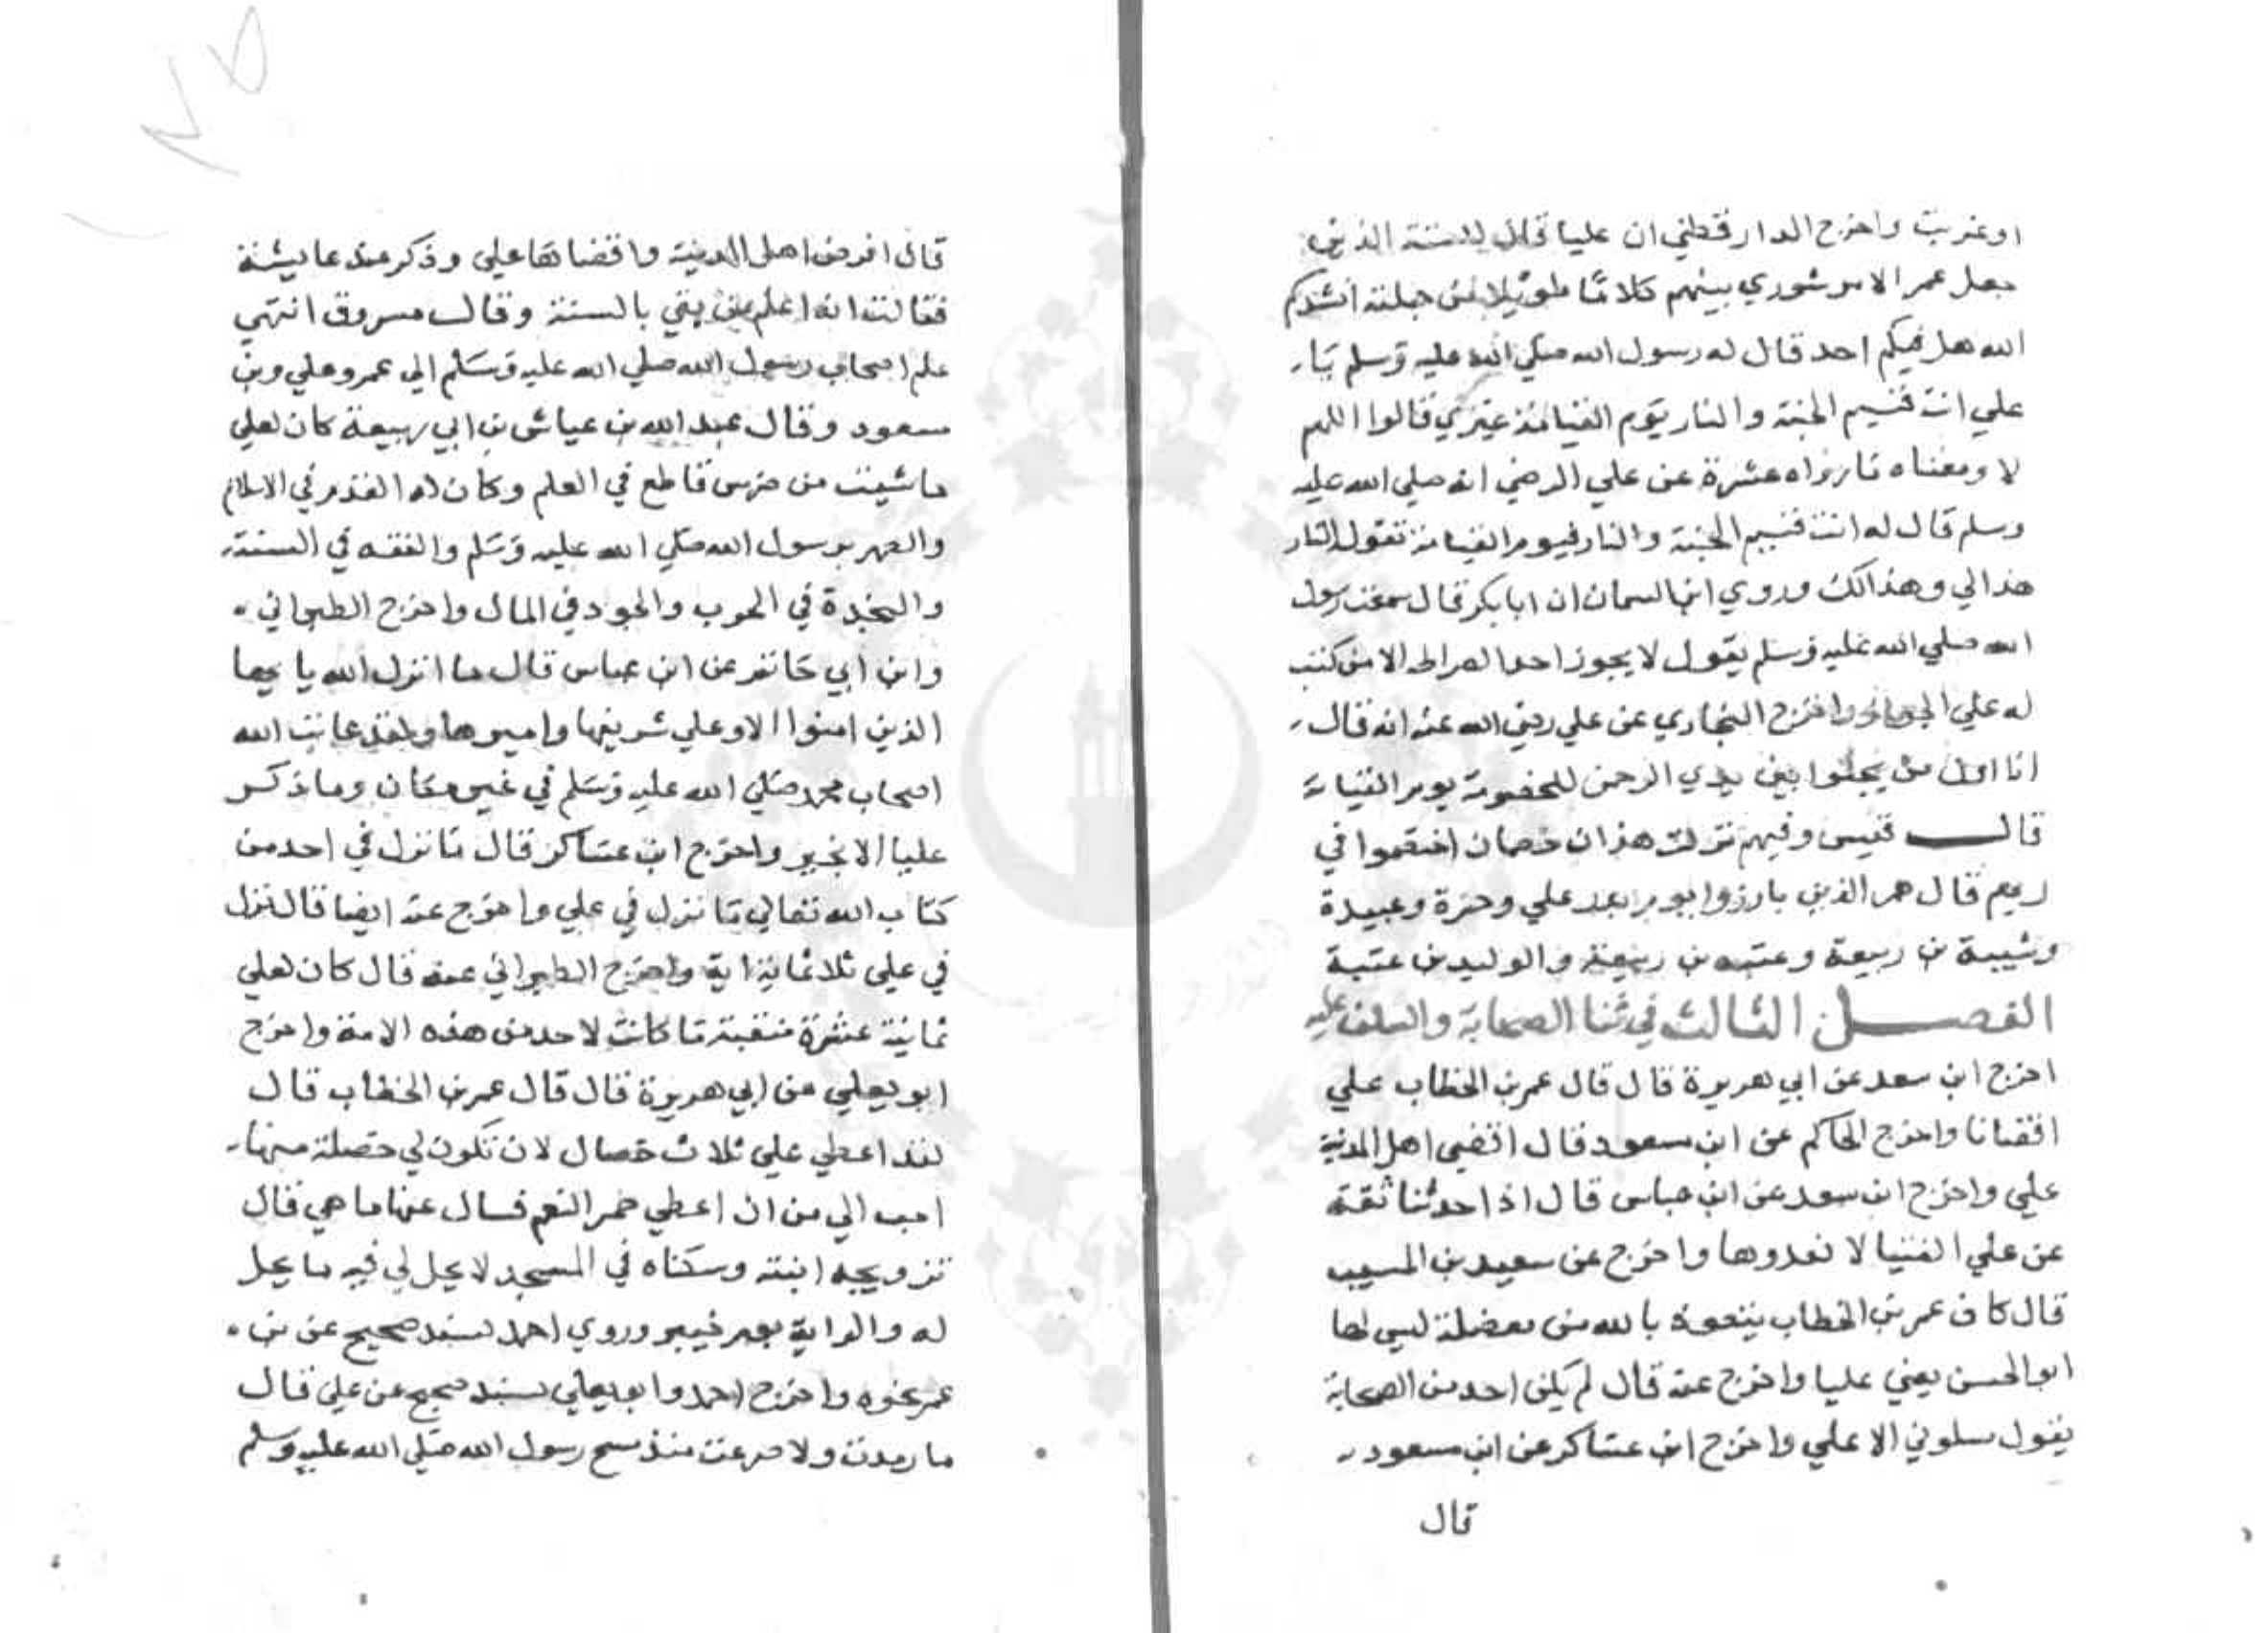 او غربت واخرج الدار قطني ان عليا قال للستة الذين
جعل عمر الامر شوري بينهم كلامًا طويلا من جملته انشدكم
الله هل فيكم احد قال له رسول الله صلي الله عليه وسلم يا
علي انت قسيم الجنة والنار يوم القيامة غيري قالوا اللهم
لا ومعناه ما رواه عنترة عن علي الرضي انه صلي الله عليه
وسلم قال له انت قسيم الجنة والنار فيوم القيامة تقول النار
هذا لي وهذا لك وروي ابن السمان ان ابا بكر قال سمعت رسول
الله صلي الله عليه وسلم يقول لا يجوز احد الصراط الا من كتب
له علي الجواز واخرج البخاري عن علي رضي الله عنه انه قال
انا اول من يجثوا بين يدي الرحمن للخصومة يوم القيامة
قال قيس وفيهم نزلت هذان خصمان اختصموا في
ربهم قال هم الذين بارزوا يوم بدر علي وحمزة وعبيدة
وشيبة بن ربيعة وعتبه بن ربيعة والوليد بن عتبة
الفصل الثالث في ثنا الصحابة والسلف عليه
اخرج ابن سعد عن ابي هريرة قال قال عمر بن الخطاب علي
اقضانا واخرج الحاكم عن ابن مسعود قال اقضي اهل المدنية
علي واخرج ابن سعد عن ابن عباس قال اذا حدثنا ثقة
عن علي الفتيا لا نعدوها واخرج عن سعيد بن المسيب
قال كان عمر بن الخطاب يتعوذ بالله من معضلة ليس لها
ابو الحسن يعني عليا واخرج عنه قال لم يكن احد من الصحابة
يقول سلوني الا علي واخرج ابن عساكر عن ابن مسعود
قال
قال افرض اهل المدينة واقضاها علي وذكر عند عايشة
فقالت انه اعلم من بقي بالسنة وقال مسروق انتهي
علم اصحاب رسول الله صلي الله عليه وسلم الي عمر وعلي وبن
مسعود وقال عبد الله بن عياش بن ابي ربيعة كان لعلي
ما شيت من ضرس قاطع في العلم وكان له القدم في الاسلام
والصهر برسول الله صلي الله عليه وسلم والفقه في السنة
والنجدة في الحرب والجود في المال واخرج الطبراني
وابن ابي حاتم عن ابن عباس قال ما انزل الله يا يها
الذين امنوا الا وعلي شريفها واميرها ولقد عاتب الله
اصحاب محمد صلي الله عليه وسلم في غير مكان وما ذكر
عليا الا بخير واخرج ابن عساكر قال ما نزل في احد من
كتاب الله تعالي ما نزل في علي واخرج عنه ايضا قال نزل
في علي ثلاثماية اية واخرج الطبراني عنه قال كان لعلي
ثمانية عشرة منقبة ما كانت لاحد من هذه الامة واخرج
ابو يعلي عن ابي هريرة قال قال عمر بن الخطاب قال
لقد اعطي علي ثلاث خصال لان تكون لي خصلة منها
احب الي من ان اعطي حمر النعم فسال عنها ما هي قال
تزويجه ابنته وسكناه في المسجد لا يحل لي فيه ما يحل
له والراية يوم خيبر وروي احمد بسند صحيح عن بن
عمر نحوه واخرج احمد وابو يعلي بسند صحيح عن علي قال
ما رمدت ولا صدعت منذ مسح رسول الله صلي الله عليه وسلم